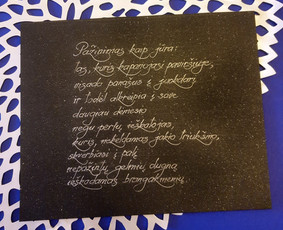 Pažinimas kaip jūra:
tas, kuris kapanojasi paviršiuje,
visada
ir todėl atkreipia į save
daugiau dėmesio
negu perlų ieškotojas,
kuris, nekeldamas jokio triukšmo,
skverbiasi į patį
nepažintų gelmių dugną
ieškodamas brangakmenių.